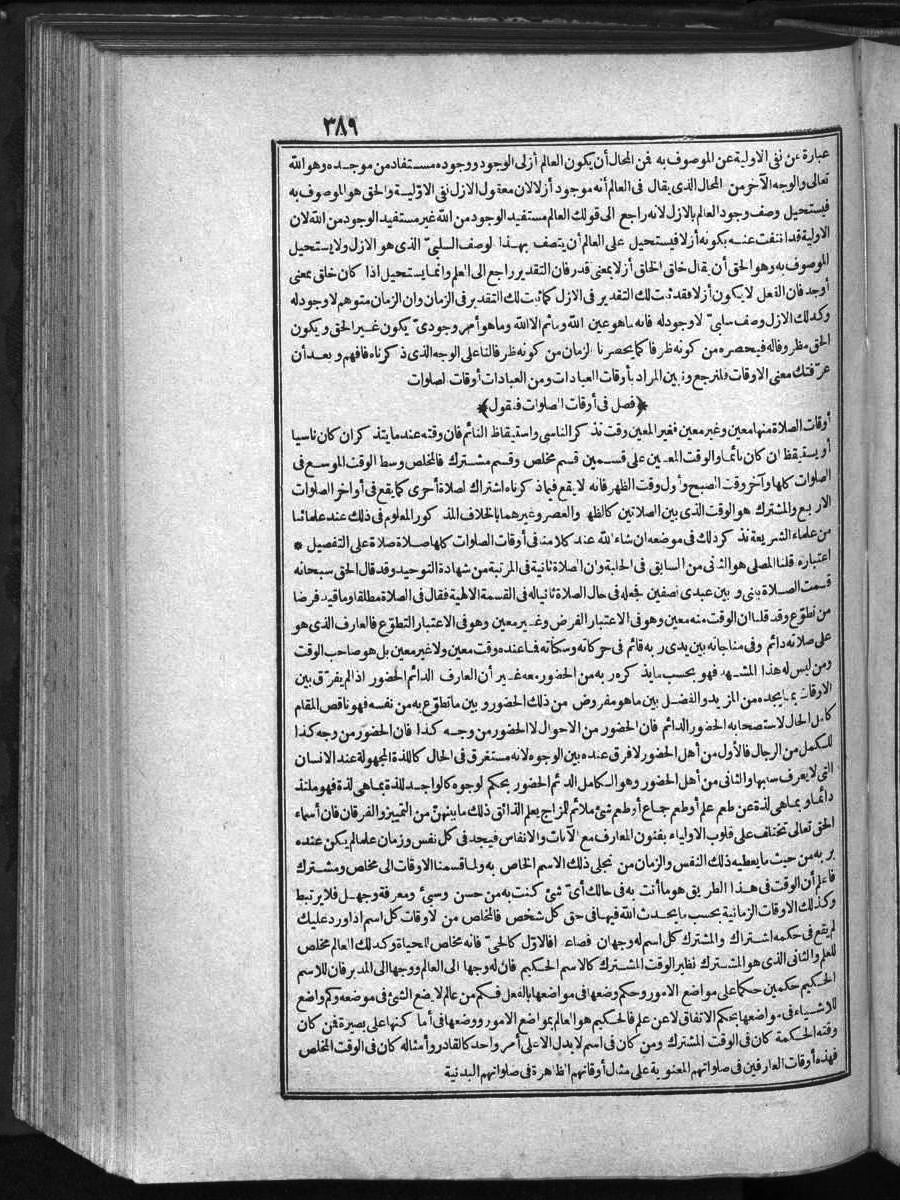 ٣٨٩
عبارة عن نفى الاولية عن الموصوف به فمن المحال أن يكون العالم أزلى الوجود ووجوده مستفاد من موجده وهو الله
تعالى والوجه الآخر من المحال الذى يقال فى العالم أنه موجود أزلا لان معقول الازل نفى الاوّلية والحق هو الموصوف به
فيستحيل وصف وجود العالم بالازل لانه راجع الى قولك العالم مستفيد الوجود من الله غير مستفيد الوجود من الله لان
الاولية قد انتفت عنه بكونه أزلا فيستحيل على العالم أن يتصف بهذا الوصف السلبىّ الذى هو الازل ولا يستحيل
الموصوف به وهو الحق أن يقال خلق الخلق أزلا بمعنى قدر فان التقدير راجع الى العلم وانما يستحيل اذا كان خلق بمعنى
أوجد فان الفعل لا يكون أزلا فقد ثبت لك التقدير فى الازل كما ثبت لك التقدير فى الزمان وان الزمان متوهم لا وجود له
وكذلك الازل وصف سلبىّ لا وجود له فانه ما هو عين الله وما ثم الا الله وما هو أمر وجودىّ يكون غير الحق ويكون
الحق مظروفا له فيحصره من كونه ظرفا كما يحصرنا الزمان من كونه ظرفا لنا على الوجه الذى ذكرناه فافهم وبعد أن
عرّفتك معنى الاوقات فلنرجع ونبين المراد بأوقات العبادات ومن العبادات أوقات الصلوات
﴿فصل فى أوقات الصلوات فنقول﴾
أوقات الصلاة منها معين وغير معين فغير المعين وقت تذكر الناسى واستيقاظ النائم فان وقته عند ما يتذكر ان كان ناسيا
أو يستيقظ ان كان نائما والوقت المعين على قسمين قسم مخلص وقسم مشترك فالمخلص وسط الوقت الموسع فى
الصلوات كلها وآخر وقت الصبح وأول وقت الظهر فانه لا يقع فيما ذكرناه اشتراك لصلاة أخرى كما يقع فى أواخر الصلوات
الاربع والمشترك هو الوقت الذى بين الصلاتين كالظهر والعصر وغيرهما بالخلاف المذكور المعلوم فى ذلك عند علمائنا
من علماء الشريعة نذكر ذلك فى موضعه ان شاء الله عند كلامنا فى أوقات الصلوات كلها صلاة صلاة على التفصيل *
اعتباره قلنا المصلى هو الثانى من السابق فى الحلبة وان الصلاة ثانية فى المرتبة من شهادة التوحيد وقد قال الحق سبحانه
قسمت الصلاة بينى وبين عبدى نصفين فجعله فى حال الصلاة ثانيا له فى القسمة الالهية فقال فى الصلاة مطلقا وما قيد فرضا
من تطوّع وقد قلنا ان الوقت منه معين وهو فى الاعتبار الفرض وغير معين وهو فى الاعتبار التطوّع فالعارف الذى هو
على صلاته دائم وفى مناجاته بين يدى ربه قائم فى حركاته وسكناته فما عنده وقت معين ولا غير معين بل هو صاحب الوقت
ومن ليس له هذا المشهد فهو بحسب ما يذكره ربه من الحضور معه غير أن العارف الدائم الحضور اذا لم يفرّق بين
الاوقات بما يجده من المزيد والفضل بين ما هو مفروض من ذلك الحضور وبين ما تطوّع به من نفسه فهو ناقص المقام
كامل الحال لاستصحابه الحضور الدائم فان الحضور من الاحوال لا الحضور من وجه كذا فان الحضور من وجه كذا
للكمل من الرجال فالأول من أهل الحضور لا فرق عنده بين الوجوه لانه مستغرق فى الحال كاللذة المجهولة عند الانسان
التى لا يعرف سببها والثانى من أهل الحضور وهو الكامل الدائم الحضور بحكم الوجوه كالواجد للذة بما هى لذة فهو ملتذ
دائما وبما هى لذة عن طعم علم أو طعم جماع أو طعم شئ ملائم للمزاج يعلم الذائق ذلك ما بينهنّ من التمييز والفرقان فان أسماء
الحق تعالى تختلف على قلوب الاولياء بفنون المعارف مع الآنات والانفاس فيجد فى كل نفس وزمان علما لم يكن عنده
بربه من حيث ما يعطيه ذلك النفس والزمان من تجلى ذلك الاسم الخاص به ولما قسمنا الاوقات الى مخلص ومشترك
فاعلم أن الوقت فى هذا الطريق هو ما أنت به فى حالك أىّ شئ كنت به من حسن وسيئ ومعرفة وجهل فلا يرتبط
وكذلك الاوقات الزمانية بحسب ما يحدث الله فيها فى حق كل شخص فالمخلص من الاوقات كل اسم اذا ورد عليك
لم يقع فى حكمه اشتراك والمشترك كل اسم له وجهان فصاعدا فالاوّل كالحىّ فانه مخلص للحياة وكذلك العالم مخلص
للعلم والثانى الذى هو المشترك نظير الوقت المشترك كالاسم الحكيم فان له وجها الى العالم ووجها الى المدبر فان للاسم
الحكيم حكمين حكما على مواضع الامور وحكم وضعها فى مواضعها بالفعل فكم من عالم لا يضع الشئ فى موضعه وكم واضع
للاشياء فى مواضعها بحكم الاتفاق لا عن علم فالحكيم هو العالم بمواضع الامور ووضعها فى أماكنها على بصيرة فمن كان
وقته الحكمة كان فى الوقت المشترك ومن كان فى اسم لا يدل الا على أمر واحد كالقادر وأمثاله كان فى الوقت المخلص
فهذه أوقات العارفين فى صلواتهم المعنوية على مثال أوقاتهم الظاهرة فى صلواتهم البدنية